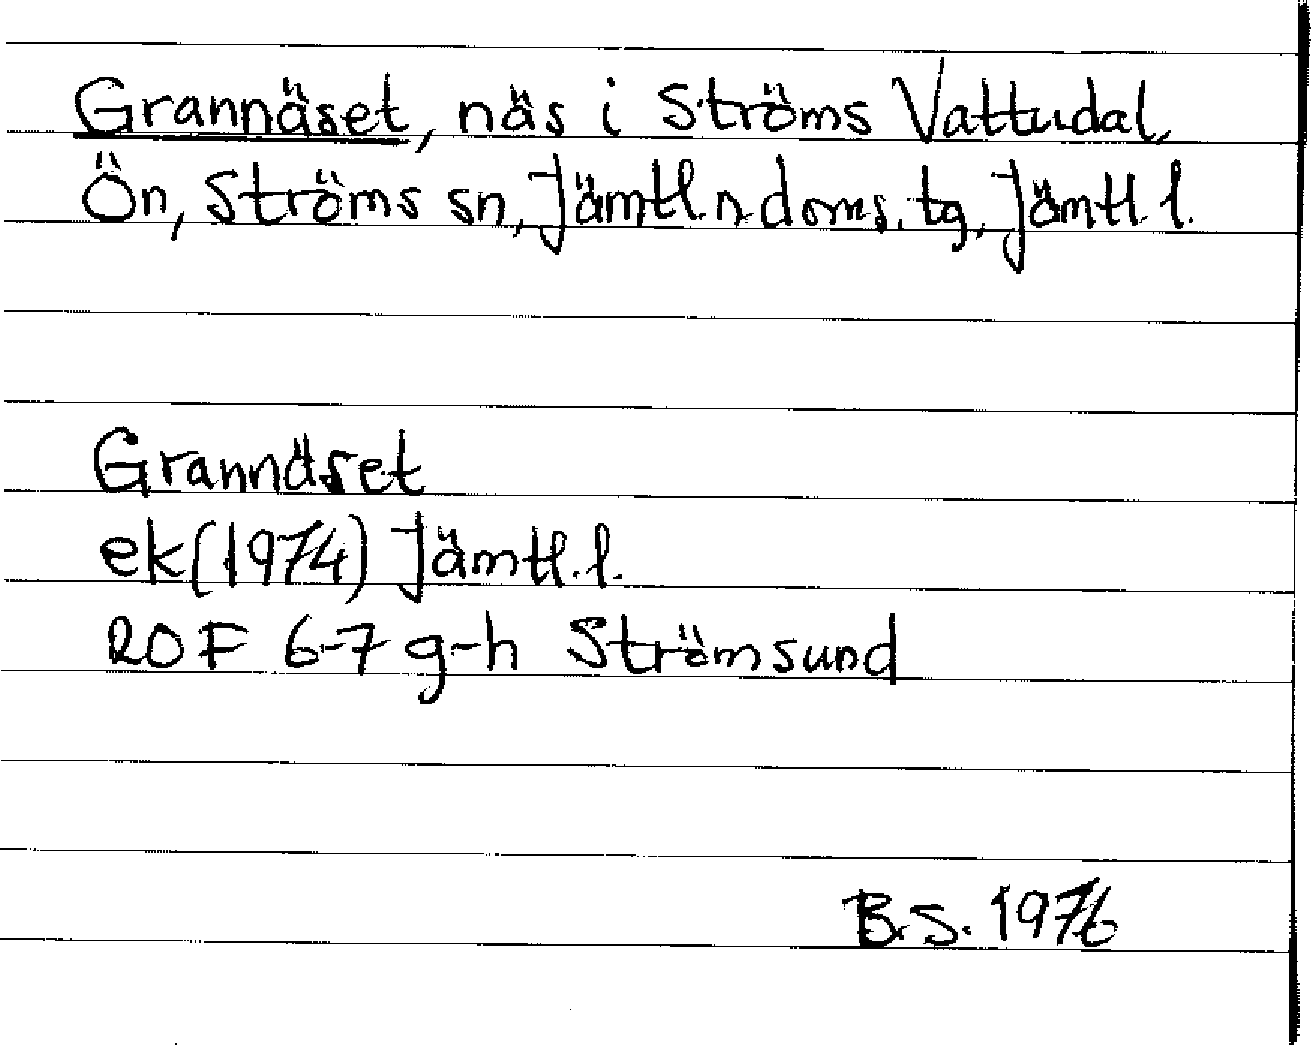 Grannäset, näs i Ströms Vattudal,
Ön, Ströms sn, Jämtl. n. doms. tg, Jämtl. l.
Grannäset
ek (1974) Jämtl. l.
20 F 6-7 g-h Strömsund
B.S. 1976